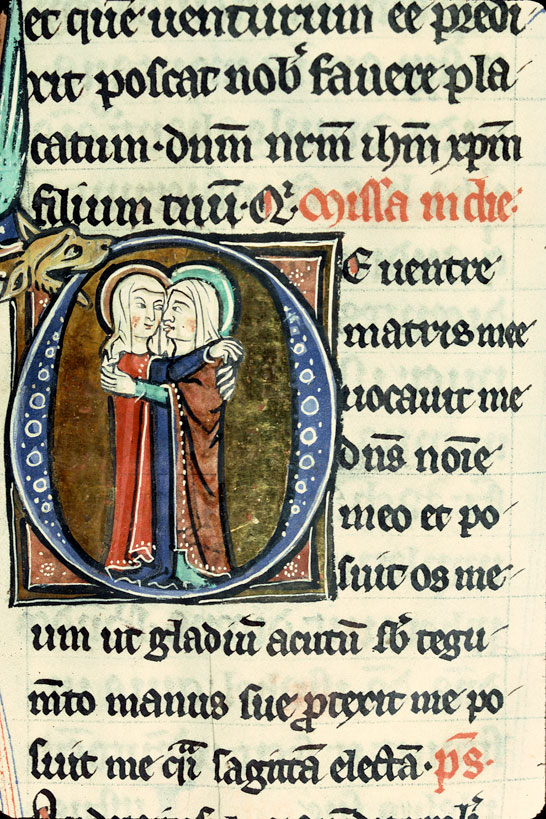 et quē uenturum eē predi
xit poscat nob̄ fauere pla
catum·dn̄m nr̄m ih̄m xp̄m
filium tuū·Qʳ·Missa in die·
E uentre
matris mee
uocauit me
dn̄s noīe
meo et po
suit os me
um ut gladiū acutū sb̄ tegu
m̄to manus sue ꝓtexit me po
suit me qͣi sagittā electā·p̄s·